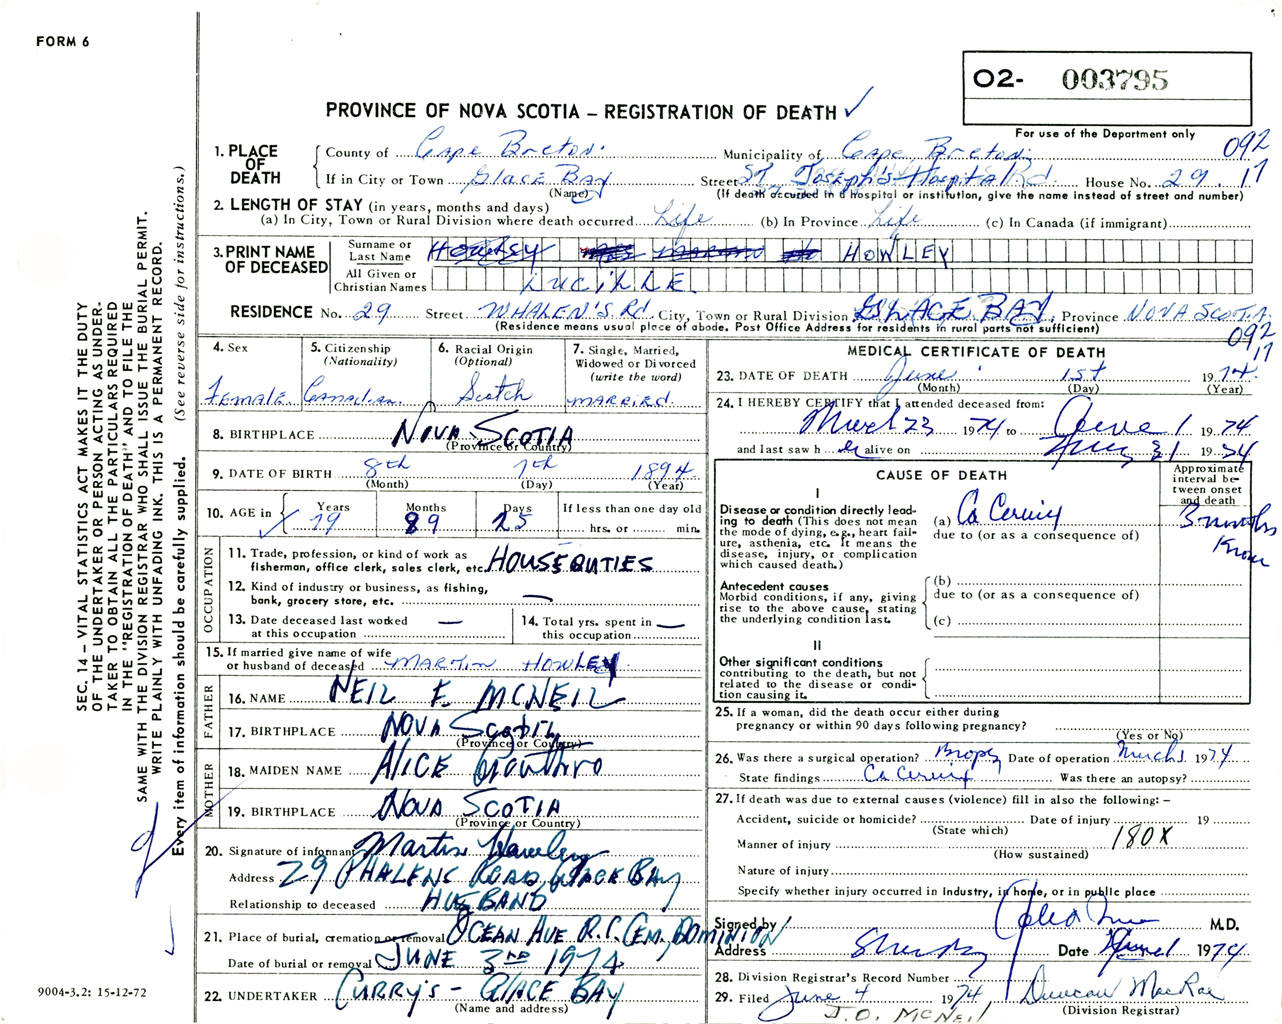 FORM 6
O2- 003795
PROVINCE OF NOVA SCOTIA – REGISTRATION OF DEATH ✓
For use of the Department only
092
17
1. PLACE OF DEATH
County of Cape Breton Municipality of Cape Breton
If in City or Town Glace Bay Street St. Joseph's Hospital Rd. House No. 29
(Name) (If death occurred in a hospital or institution, give the name instead of street and number)
2. LENGTH OF STAY (in years, months and days)
(a) In City, Town or Rural Division where death occurred Life (b) In Province Life (c) In Canada (if immigrant)
3. PRINT NAME OF DECEASED
Surname or Last Name HOWLEY
All Given or Christian Names LUCILLE
RESIDENCE No. 29 Street WHALEN'S Rd. City, Town or Rural Division GLACE BAY, Province NOVA SCOTIA
(Residence means usual place of abode. Post Office Address for residents in rural parts not sufficient)
092
17
4. Sex
Female
5. Citizenship (Nationality)
Canadian
6. Racial Origin (Optional)
Scotch
7. Single, Married, Widowed or Divorced (write the word)
MARRIED.
8. BIRTHPLACE NOVA SCOTIA
(Province or Country)
9. DATE OF BIRTH 8th 7th 1894
(Month) (Day) (Year)
10. AGE in Years Months Days If less than one day old
79 25 hrs. or min.
OCCUPATION
11. Trade, profession, or kind of work as fisherman, office clerk, sales clerk, etc. HOUSEDUTIES
12. Kind of industry or business, as fishing, bank, grocery store, etc. —
13. Date deceased last worked at this occupation —
14. Total yrs. spent in this occupation —
15. If married give name of wife or husband of deceased MARTIN HOWLEY
FATHER
16. NAME NEIL F. MCNEIL
17. BIRTHPLACE NOVA SCOTIA
(Province or Country)
MOTHER
18. MAIDEN NAME ALICE
19. BIRTHPLACE NOVA SCOTIA
(Province or Country)
20. Signature of informant Martin Howley
Address 29 PHALENS ROAD GLACE BAY
Relationship to deceased HUSBAND
21. Place of burial, cremation or removal OCEAN AVE R.C. CEM, DOMINION
Date of burial or removal JUNE 3rd 1974
22. UNDERTAKER CURRY'S – GLACE BAY
(Name and address)
MEDICAL CERTIFICATE OF DEATH
23. DATE OF DEATH June 1st 1974
(Month) (Day) (Year)
24. I HEREBY CERTIFY that I attended deceased from:
March 23 1974 to June 1 1974
and last saw h er alive on May 31 1974
CAUSE OF DEATH
Approximate interval between onset and death
I
Disease or condition directly leading to death (This does not mean the mode of dying, e.g., heart failure, asthenia, etc. It means the disease, injury, or complication which caused death.)
(a) Ca Cervix
due to (or as a consequence of)
3 months
Known
Antecedent causes
Morbid conditions, if any, giving rise to the above cause, stating the underlying condition last.
(b)
due to (or as a consequence of)
(c)
II
Other significant conditions contributing to the death, but not related to the disease or condition causing it.
25. If a woman, did the death occur either during pregnancy or within 90 days following pregnancy?
(Yes or No)
26. Was there a surgical operation? Biopsy Date of operation March 1974
State findings Ca Cervix Was there an autopsy?
27. If death was due to external causes (violence) fill in also the following: –
Accident, suicide or homicide? Date of injury 19
(State which)
Manner of injury 180X
(How sustained)
Nature of injury
Specify whether injury occurred in Industry, in home, or in public place
Signed by M.D.
Address Date June 1 1974
28. Division Registrar's Record Number
29. Filed June 4 1974 Duncan MacRae
(Division Registrar)
J.O. MCNEIL
SEC. 14 – VITAL STATISTICS ACT MAKES IT THE DUTY
OF THE UNDERTAKER OR PERSON ACTING AS UNDER-
TAKER TO OBTAIN ALL THE PARTICULARS REQUIRED
IN THE "REGISTRATION OF DEATH" AND TO FILE THE
SAME WITH THE DIVISION REGISTRAR WHO SHALL ISSUE THE BURIAL PERMIT.
WRITE PLAINLY WITH UNFADING INK. THIS IS A PERMANENT RECORD.
Every item of information should be carefully supplied. (See reverse side for instructions.)
9004-3.2: 15-12-72